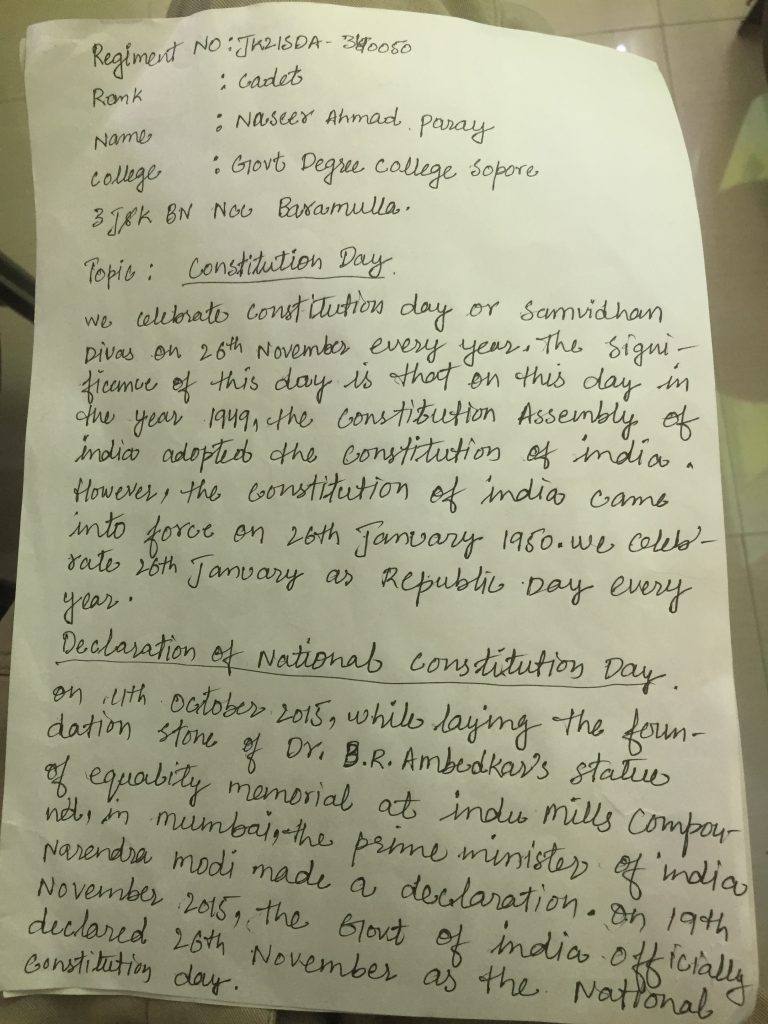 Regiment NO : JK21SDA - 340050
Rank : Cadet
Name : Naseer Ahmad Paray
College : Govt Degree College Sopore
3 J&K BN NCC Baramulla.
Topic : Constitution Day.
we celebrate constitution day or Samvidhan
Divas on 26th November every year. The signi-
ficance of this day is that on this day in
the year 1949, the Constitution Assembly of
india adopted the constitution of india.
However, the constitution of india came
into force on 26th January 1950. we celeb-
rate 26th January as Republic Day every
year.
Declaration of National Constitution Day.
on 11th October 2015, while laying the foun-
dation stone of Dr. B.R. Ambedkar's statue
of equality memorial at indu mills Compou-
nd, in mumbai, the prime minister of india
Narendra modi made a declaration. on 19th
November 2015, the Govt of india officially
declared 26th November as the National
Constitution day.